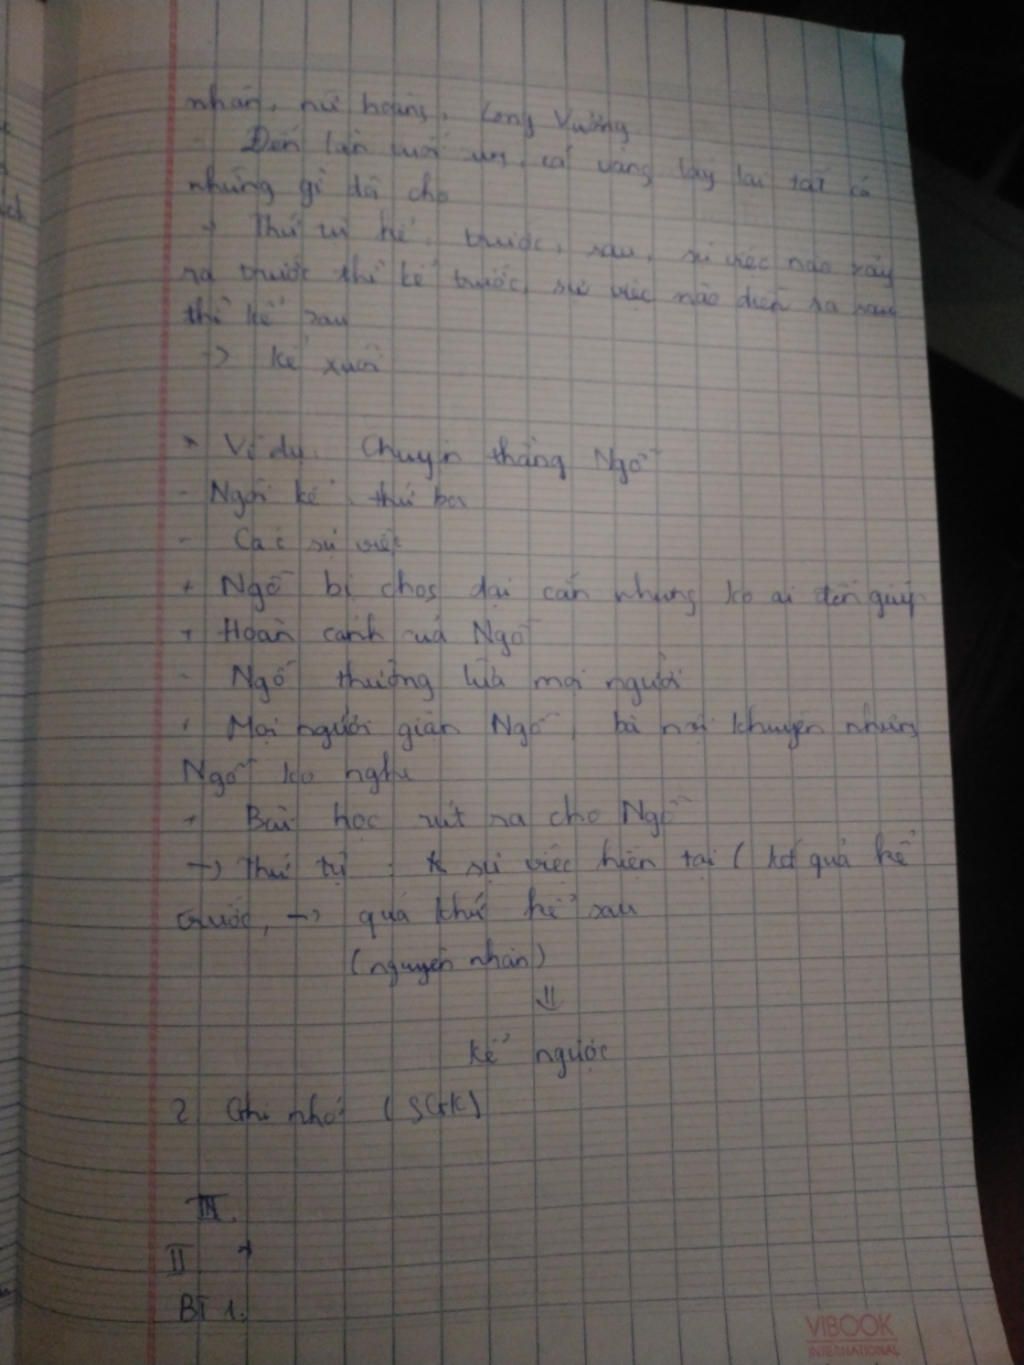 nhân, nữ hoàng, Long Vương
- Đến lần cuối cá vàng lấy lại tất cả
những gì đã cho
+ Thứ tự kể: trước, sau, sự việc nào xảy
ra trước thì kể trước, sự việc nào diễn ra sau
thì kể sau
-> Kể xuôi
* Ví dụ: Chuyện thằng Ngỗ
- Ngôi kể: thứ ba
- Các sự việc
+ Ngỗ bị chos dại cắn nhưng ko ai đến giúp
+ Hoàn cảnh của Ngỗ
- Ngỗ thường lừa mọi người
+ Mọi người giận Ngỗ, bà nội khuyên nhưng
Ngỗ ko nghe
+ Bài học rút ra cho Ngỗ
-> Thứ tự: sự việc hiện tại ( kết quả kể
trước, -> quá khứ kể sau
(nguyên nhân)
⇓
kể ngược
2. Ghi nhớ (SGK)
III.
II
BT 1.
VIBOOK
INTERNATIONAL